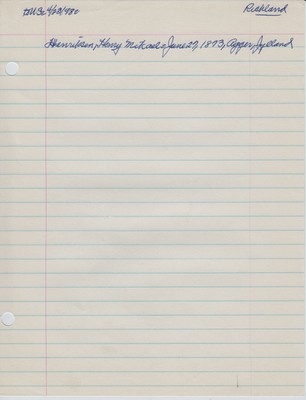 4/23/1980 Richland
Henriksen, Henry Mikael, June 27, 1873, Agger, Jylland